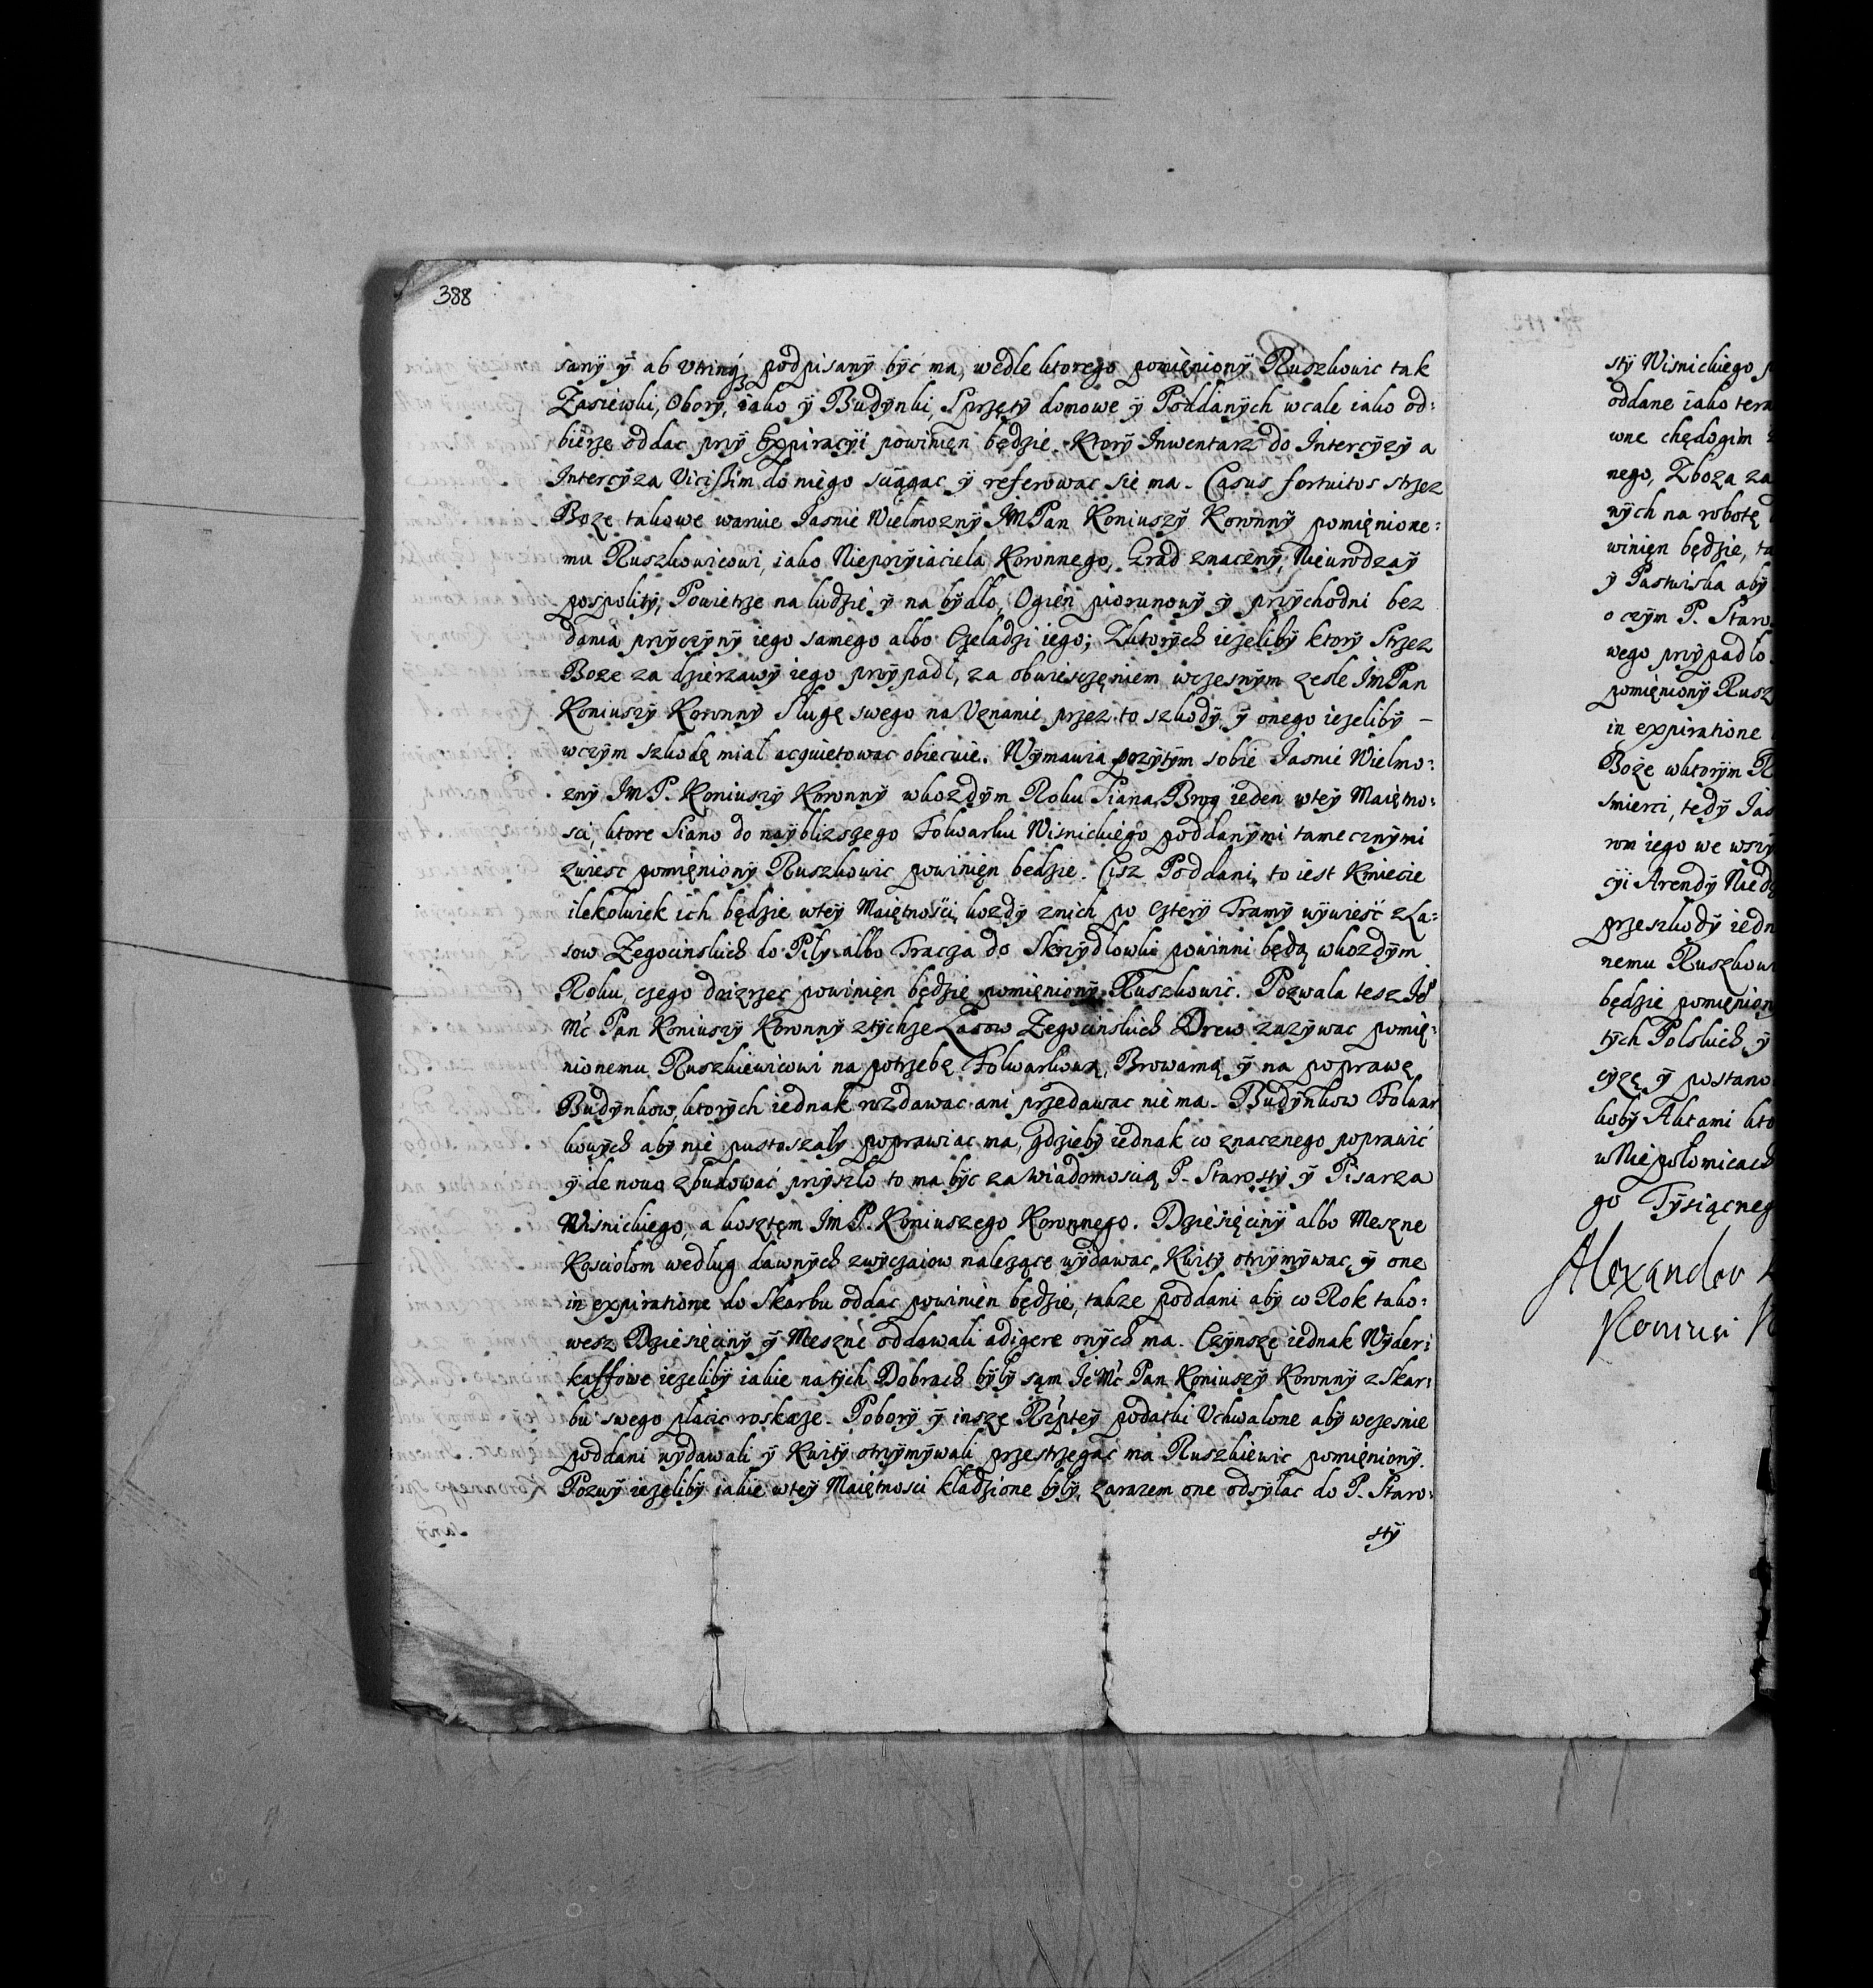 388
sany ÿ ab utrinq; podpisany być ma, wedle ktorego pomięniony Ruszkowic tak
Zasiewki, Obory, iako ÿ Budynki, Sprzęty domowe ÿ Poddanych wcale iako od:
bierze oddac przy Expiracyi powinięn będzie. Ktory Inwentarz do Intercyzy a
Intercyza Vicissim do niego sciągac ÿ referowac się ma. Casus fortuitos strzez
Boze takowe waruie Iasnie Wielmozny IM Pan Koniuszy Koronny pomięnione:
mu Ruszkowicowi, iako Nieprzyiaciela Koronnego, Grad znaczny, Nieurodzay
pospolity, Powietrze na ludzie ÿ na bydło, Ogień piorunowy ÿ przychodni bez
dania przyczyny iego samego albo Czeladzi iego; Zktorych iezeliby ktory Strzez
Boze za dzierzawy iego przypadł, za obwieszczęniem wczesnym zesle ImPan
Koniuszy Koronny Sługę swego na Vznanie przez to szkody, ÿ onego iezeliby –
wczym szkodę miał acquietowac obiecuie. Wymawia pozytym sobie Iasnie Wielmo:
zny Im P. Koniuszy Koronny wkozdym Roku Siana Brog ieden wtey Maiętno:
sci, ktore Siano do nayblizszego Folwarku Wisnickiego poddanymi tamecznymi
zwiesc pomięniony Ruszkowic powinięn bedzie. Cisz Poddani, to iest Kmiecie
ilekolwiek ich będzie wtey Maiętności, kozdy znich po Cztery Tramy wywieść z La:
sow Zegocinskich do Piły albo Tracza do Skrzydłowki powinni będą wkozdym
Roku, czego doizrzec powinięn będzie pomięniony Ruszkowic. Pozwala tesz Ie
Mc Pan Koniuszy Koronny ztychze Lasow Zegocinskich Drew zazywac pomię:
nionemu Ruszkiewicowi na potrzebę Folwarkową, Browarną ÿ na poprawę
Budynkow, ktorych iednak rozdawac ani przedawac nie ma. Budynkow Folwar
kowych aby nie pustoszały poprawiac ma, gdzieby iednak co znacznego poprawić
ÿ de nouo zbudować przyszło to ma byc za wiadomoscią P. Starosty ÿ Pisarza
Wisnickiego, a kosztęm Im P. Koniuszego Koronnego. Dziesięciny albo Meszne
Kosciołom według dawnych zwyczaiow nalezące wydawac, Kwity otrzymywac, ÿ one
in expiratione do Skarbu oddac powinięn będzie, takze poddani aby co Rok tako:
wesz Dziesięciny ÿ Meszne oddawali adigere onych ma. Czynsze iednak Wyder:
kaffowe iezeliby iakie na tych Dobrach były sąm Ie Mc Pan Koniuszy Koronny z Skar:
bu swego płacic roskaze. Pobory ÿ insze Rzptey podatki Vchwalone aby wczesnie
poddani wydawali ÿ Kwity otrzymywali przestrzegać ma Ruszkiewic pomięniony.
Pozwy iezeliby iakie wtey Maiętnosci kładzione były, zarazem one odsyłac do P. Staro:
sty
sty Wisnickiego
oddane iako
wne chędogim
nego, Zboza
nych na robotę
winięn będzie,
ÿ Pastwiska aby
o czym P.
wego przypadło
pomięniony
in expiratione
Boże wktorym
smierci, tedy
rom iego we
cyi Arendy
przeszkody
nemu
będzie
tych Polskich ÿ
cyzę ÿ
koby Aktami
w Niepołomicach
go
Alexander